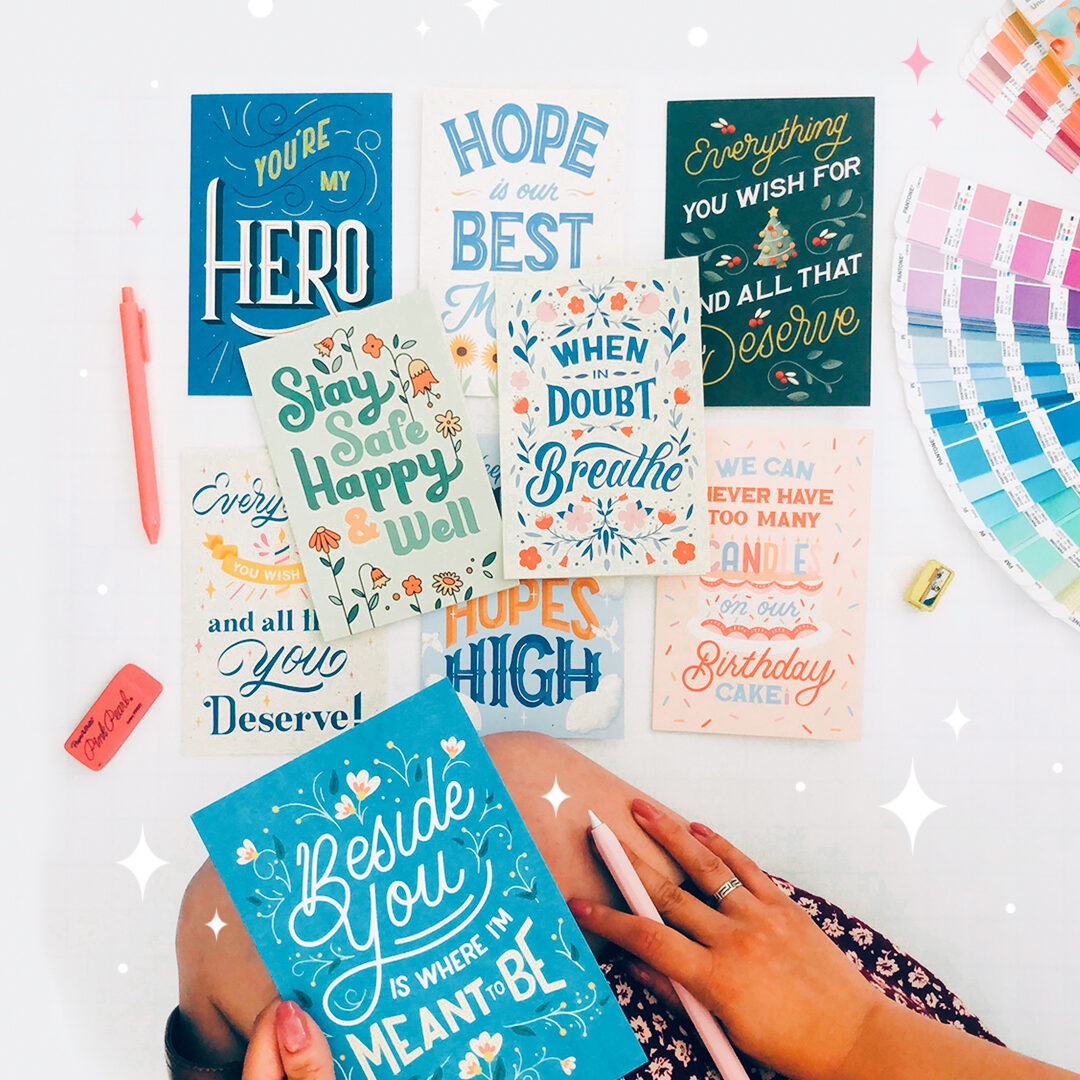 YOU'RE
MY
HERO
HOPE
is our
BEST
Everything
YOU WISH FOR
AND ALL THAT
Deserve
Stay
Safe
Happy
& Well
WHEN
IN
DOUBT,
Breathe
YOU WISH
and all
You
Deserve!
HOPES
HIGH
WE CAN
NEVER HAVE
TOO MANY
CANDLES
on our
Birthday
CAKE!
PANTONE
PANTONE
PANTONE
Pink Pearl
Beside
You
IS WHERE I'M
MEANT TO BE